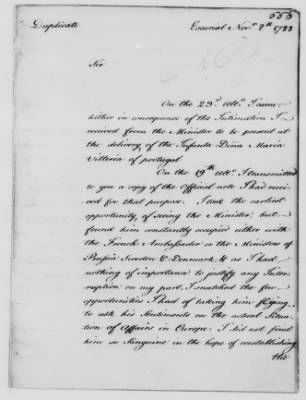 555
Duplicate Escurial Nov.r 8.th 1788
Sir
On the 23.d Ult.o I came
hither in consequence of the Intimation I
received from the Minister to be present at
the delivery of the Infanta Doña Maria
Vittoria of portugal
On the 19.th Ult.o I transmitted
to you a copy of the Official note I had recei-
ved for that purpose. I took the earliest
opportunity, of seeing the Minister, but
found him constantly occupied either with
the French Ambassador or the Ministers of
Prussia Sweden & Denmark, & as I had
nothing of importance to justify any Inter-
ruption on my part, I snatched the few
opportunities I had of taking him flying,
to ask his Sentiments on the actual Situa-
tion of Affairs in Europe. I did not find
him so Sanguine in the hope of reestablishing
the